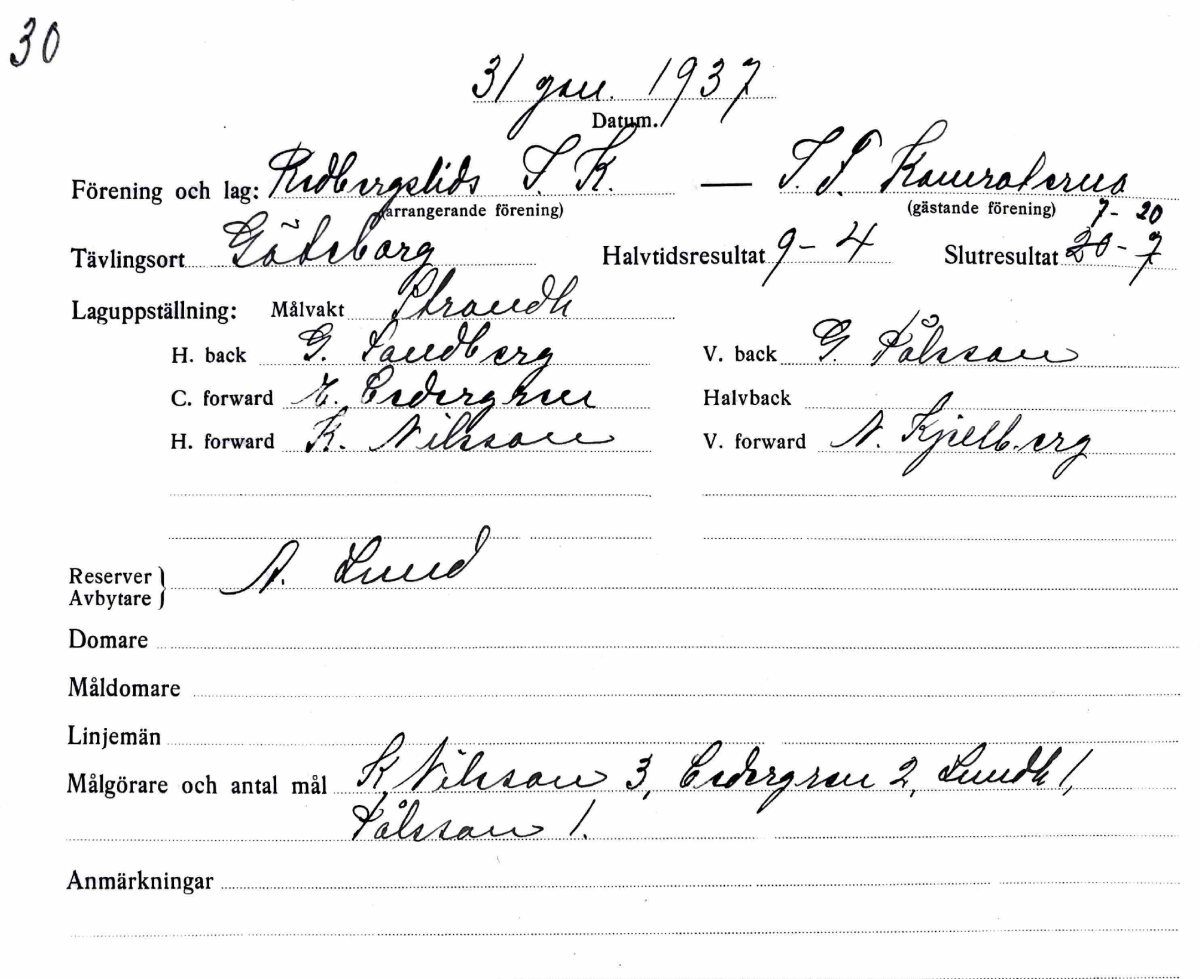 30
31 jan. 1937
Datum.
Förening och lag: Redbergslids I. K. — I. F. Kamraterna
(arrangerande förening) (gästande förening) 7-20
Tävlingsort Göteborg Halvtidsresultat 9-4 Slutresultat 20-7
Laguppställning: Målvakt Strandh
H. back G. Sandberg V. back G. Pålsson
C. forward E. Cedergren Halvback
H. forward K. Nilsson V. forward N. Kjellberg
Reserver } A. Lund
Avbytare }
Domare
Måldomare
Linjemän
Målgörare och antal mål K. Nilsson 3, Cedergren 2, Lundh 1,
Pålsson 1.
Anmärkningar